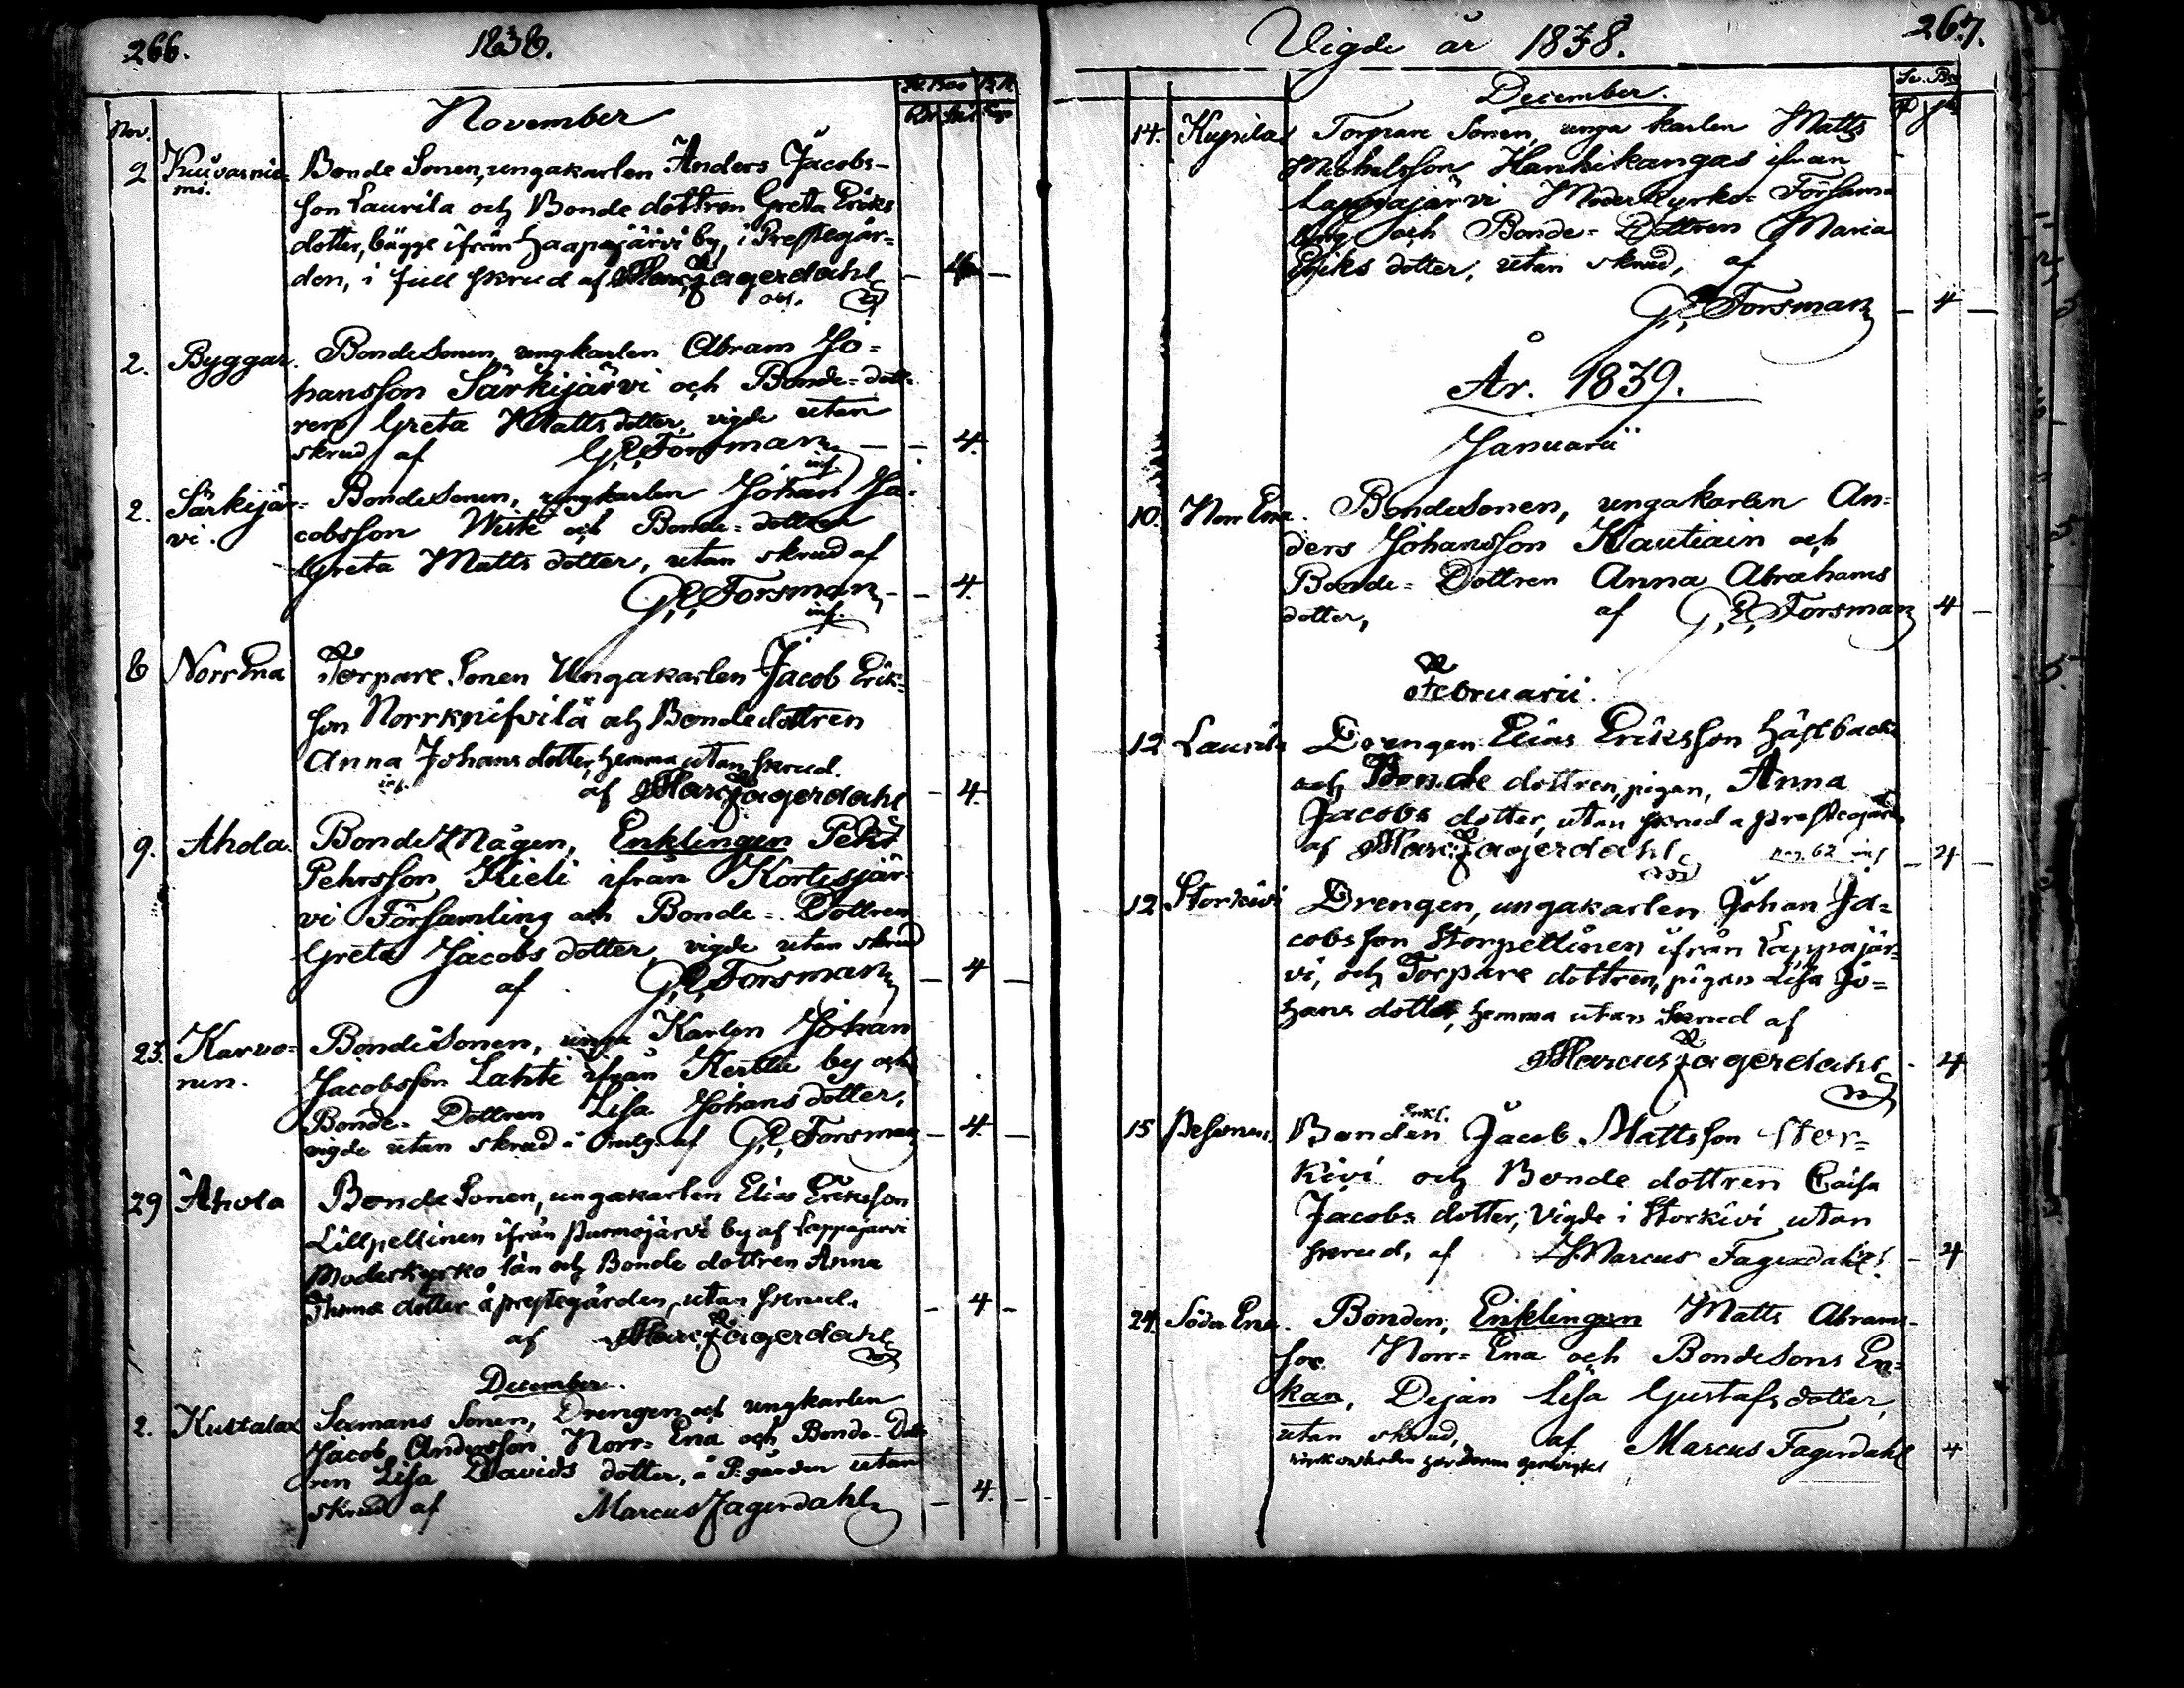 266.
1838.
November
Nov.
2 Kuuvasnie=
mi.
Bonde Sonen, ungakarlen Anders Jacobs-
son Laurila och Bonde dottren Greta Eriks
dotter, bägge ifrån Haapajärvi by, i Prestegår=
den, i full skrud af Marc Fagerdahl
2. Byggar. Bonde Sonen, ungkarlen Abram Jo=
hansson Särkijärvi och Bonde=dott=
ren Greta Mattsdotter, vigde utan
skrud af G. E. Forsman — 4.
inf.
2. Särkijär=
vi.
Bonde Sonen, ungkarlen Johan Ja=
cobsson Wistë och Bonde=dottren
Greta Matts dotter, utan skrud af
G. E. Forsman — 4.
inf.
8 Norr Ena Torpare Sonen Ungakarlen Jacob Erik=
son Norrknifvilä och Bondedottren
Anna Johans dotter, hemma utan skrud.
af Marc Fagerdahl — 4.
9. Ahola. Bonde Mågen, Enklingen Pehr
Pehrsson Kieli ifrån Kortesjär=
vi Församling och Bonde=Dottren
Greta Jacobs dotter, vigde utan skrud
af G. E. Forsman — 4
23. Karvo=
nen.
Bonde Sonen, unga Karlen Johan
Jacobsson Lahti ifrån Kerttu by och
Bonde-Dottren Lisa Johans dotter,
vigde utan skrud af G. E. Forsman — 4.
29 Ahola Bonde Sonen, ungakarlen Elias Eriksson
Lillpellinen ifrån Purmojärvi by af Lappajärvi
Moderkyrko län och Bonde dottren Anna
Thoms dotter å prestegården, utan skrud. — 4 —
af Marc Fagerdahl
December.
2. Kustalax Sexmans Sonen, Drengen och ungkarlen
Jacob Andersson Norr=Ena och Bonde-Dott
ren Lisa Davids dotter, å P:gården utan
skrud af Marcus Fagerdahl — 4.
Vigde år 1838.
267.
December.
14. Kupilax Torpare Sonen, unga karlen Matts
Michelsson Hanhikangas ifrån
Lappajärvi Moderkyrko=Försam=
ling och Bonde=Dottren Maria
Eriks dotter, utan skrud, af
G. E. Forsman — 4 —
År. 1839.
Januarii
10. Norr Ena. Bonde Sonen, ungakarlen An=
ders Johansson Kautiain och
Bonde=Dottren Anna Abrahams
dotter, af G. E. Forsman 4 —
Februarii.
12 Laurila Drengen Elias Eriksson Hästbacka
och Bonde dottren, pigan, Anna
Jacobs dotter, utan skrud å prestegården
af Marc Fagerdahl pag. 62 inf — 4 —
12 Storkivi Drengen, ungakarlen Johan Ja=
cobsson Storpellinen ifrån Lappajär=
vi, och Torpare dottren, pigan Lisa Jo=
hans dotter, hemma utan skrud af
Marcus Fagerdahl — 4
15 Pesonen Bonden Enkl. Jacob Mattsson Stor=
kivi och Bonde dottren Caisa
Jacobs dotter, Vigde i Storkivi utan
skrud, af Marcus Fagerdahl — 4
24. Söder Ena. Bonden, Enklingen Matts Abrams-
son Norr=Ena och Bondesons En=
kan, Dejan Lisa Gustafs dotter,
utan skrud, af Marcus Fagerdahl 4